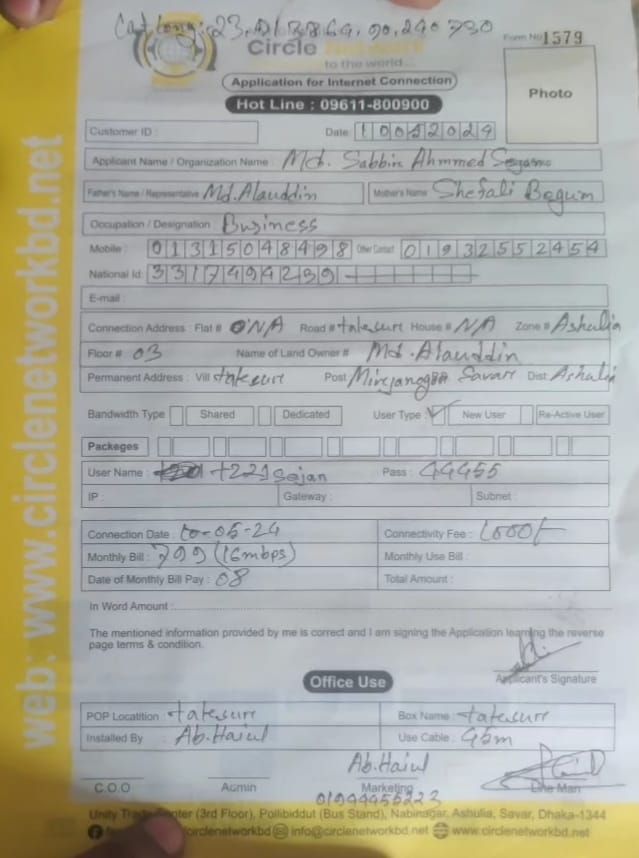 Cat Long: 23.913864, 90.240730
Circle Network
to the world...
Form No 1579
Application for Internet Connection
Hot Line : 09611-800900
Photo
Customer ID :
Date: 10052024
Applicant Name / Organization Name : Md. Sabbir Ahmmed
Father's Name / Representative Md. Alauddin Mother's Name Shefali Begum
Occupation / Designation : Business
Mobile : 01315048498 Other Contact 01932552454
National Id: 3317494239
E-mail :
Connection Address : Flat # N/A Road # tatesure House # N/A Zone # Ashulia
Floor # 03 Name of Land Owner # Md. Alauddin
Permanent Address : Vill tatesure Post Savar Dist Ashulia
Bandwidth Type Shared Dedicated User Type New User Re-Active User
Packeges
User Name : t221 Sojan Pass : 44455
IP : Gateway : Subnet :
Connection Date : 10-05-24 Connectivity Fee : 1000/-
Monthly Bill : 799 (16mbps) Monthly Use Bill :
Date of Monthly Bill Pay : 08 Total Amount :
In Word Amount :
The mentioned information provided by me is correct and I am signing the Application learning the reverse
page terms & condition.
Applicant's Signature
Office Use
POP Locatition : tatesure Box Name : tatesure
Installed By : Ab. Haiul Use Cable : 45m
Ab. Haiul
C.O.O Admin Marketing Line Man
01944455223
Unity Trade Center (3rd Floor), Pollibiddut (Bus Stand), Nabinagar, Ashulia, Savar, Dhaka-1344
circlenetworkbd info@circlenetworkbd.net www.circlenetworkbd.net
web: www.circlenetworkbd.net